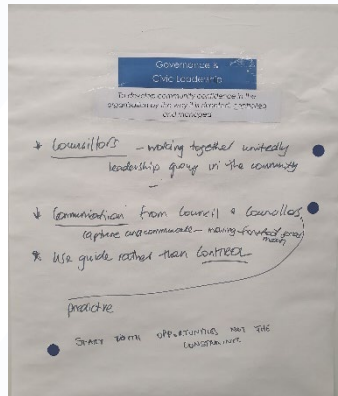 Governance &
Civic Leadership
To develop community confidence in the
organisation by the way it is directed, controlled
and managed
* Councillors – working together unitedly
leadership group in the community
–
* Communication from Council & Councillors
capture and communicate – moving forward
* Use guide rather than control
predictive
START WITH OPPORTUNITIES NOT THE
CONSTRAINTS